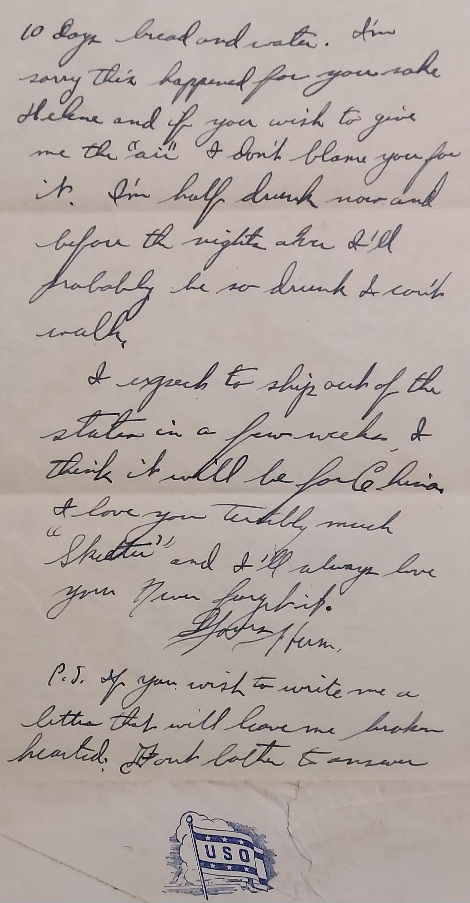 10 days bread and water. I'm
sorry this happened for you sake
Helene and if you wish to give
me the "air" I don't blame you for
it. I'm half drunk now and
before the nights over I'll
probably be so drunk I can't
walk.
I expect to ship out of the
states in a few weeks, I
think it will be for China
I love you terribly much
"Skeeter" and I'll always love
you Never forget it.
Yours Herm.
P.S. If you wish to write me a
letter that will leave me broken
hearted. Dont bother to answer
USO